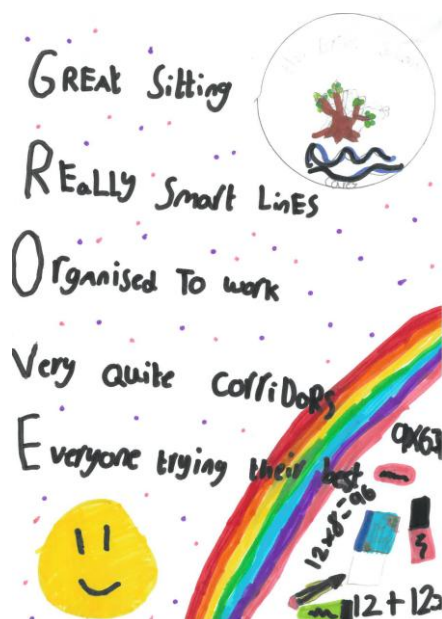 GREAt Sitting
REaLLy Smart LinEs
Organised To work
Very Quite CorriDoRs
Everyone trying their best
9x63
12x8=96
12+12=